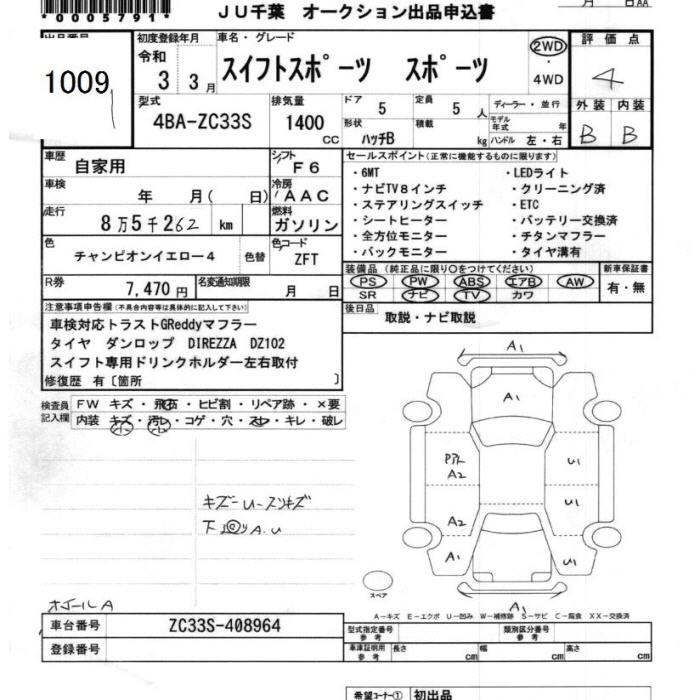 *0005791*
JU千葉 オークション出品申込書
月 日 AA
出品番号
1009
初度登録年月
令和
3 3月
車名・グレード
スイフトスポーツ スポーツ
2WD
4WD
評価点
4
型式
4BA-ZC33S
排気量
1400
cc
ドア
5
定員
5 人
形状
ハッチB
積載
kg
ディーラー・並行
モデル年式 年
ハンドル 左・右
外装 内装
B B
車歴
自家用
シフト
F6
車検
年 月( 日)
冷房
AAC
走行
8万5千262 km
燃料
ガソリン
色
チャンピオンイエロー4
色替
色コード
ZFT
R券
7,470円
名変通知期限
月 日
セールスポイント(正常に機能するものに限ります)
・6MT ・LEDライト
・ナビTV8インチ ・クリーニング済
・ステアリングスイッチ ・ETC
・シートヒーター ・バッテリー交換済
・全方位モニター ・チタンマフラー
・バックモニター ・タイヤ溝有
装備品(純正品に限り○をつけてください)
PS PW ABS エアB AW
SR ナビ TV カワ
新車保証書
有・無
後日品
取説・ナビ取説
注意事項申告欄(不具合内容等は具体的に記入して下さい)
車検対応トラストGReddyマフラー
タイヤ ダンロップ DIREZZA DZ102
スイフト専用ドリンクホルダー左右取付
修復歴 有〔箇所 〕
検査員
記入欄
FW キズ・飛石・ヒビ割・リペア跡・×要
内装 キズ・汚レ・コゲ・穴・スレ・キレ・破レ
キズー U-スリキズ
A.U
ホイールA
A1
A1
A2
A2
A1
U1
U1
U1
A1
スペア
A-キズ E-エクボ U-凹み W-補修跡 S-サビ C-腐食 XX-交換済
車台番号
ZC33S-408964
登録番号
型式指定番号
参考
類別区分番号
参考
車庫証明用
参考
長さ cm 幅 cm 高さ cm
希望コーナー① 初出品